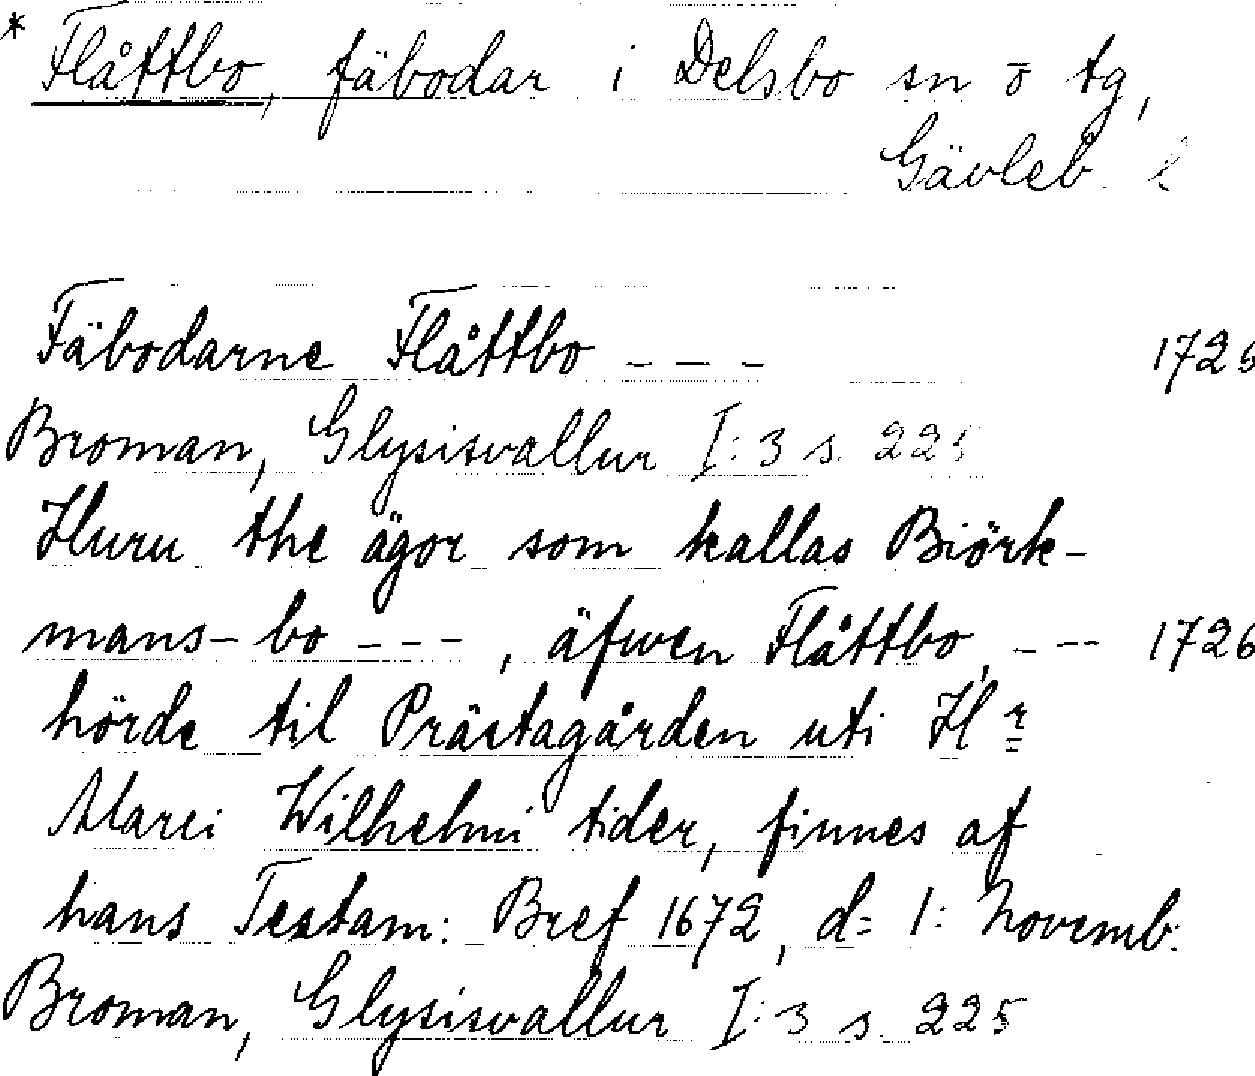 * Flåttbo, fäbodar i Delsbo sn o tg,
Gävleb. l
Fäbodarne Flåttbo _ _ _ 1726
Broman, Glysisvallur I:3 s. 225
Huru the ägor som kallas Biörk-
mans-bo - - - , äfwen Flåttbo, - -- 1726
hörde til Prästagården uti Hr
Marci Wilhelmi tider, finnes af
hans Testam: Bref 1672, d= 1: Novemb:
Broman, Glysisvallur I:3 s. 225